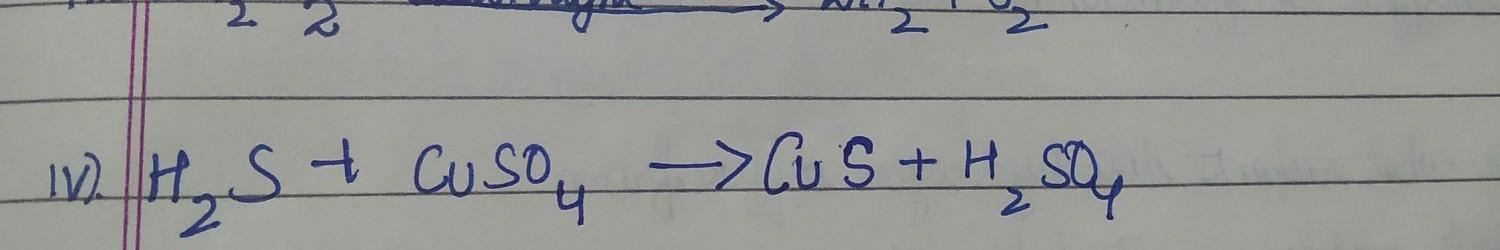 iv). H₂S + CuSO₄ → CuS + H₂SO₄